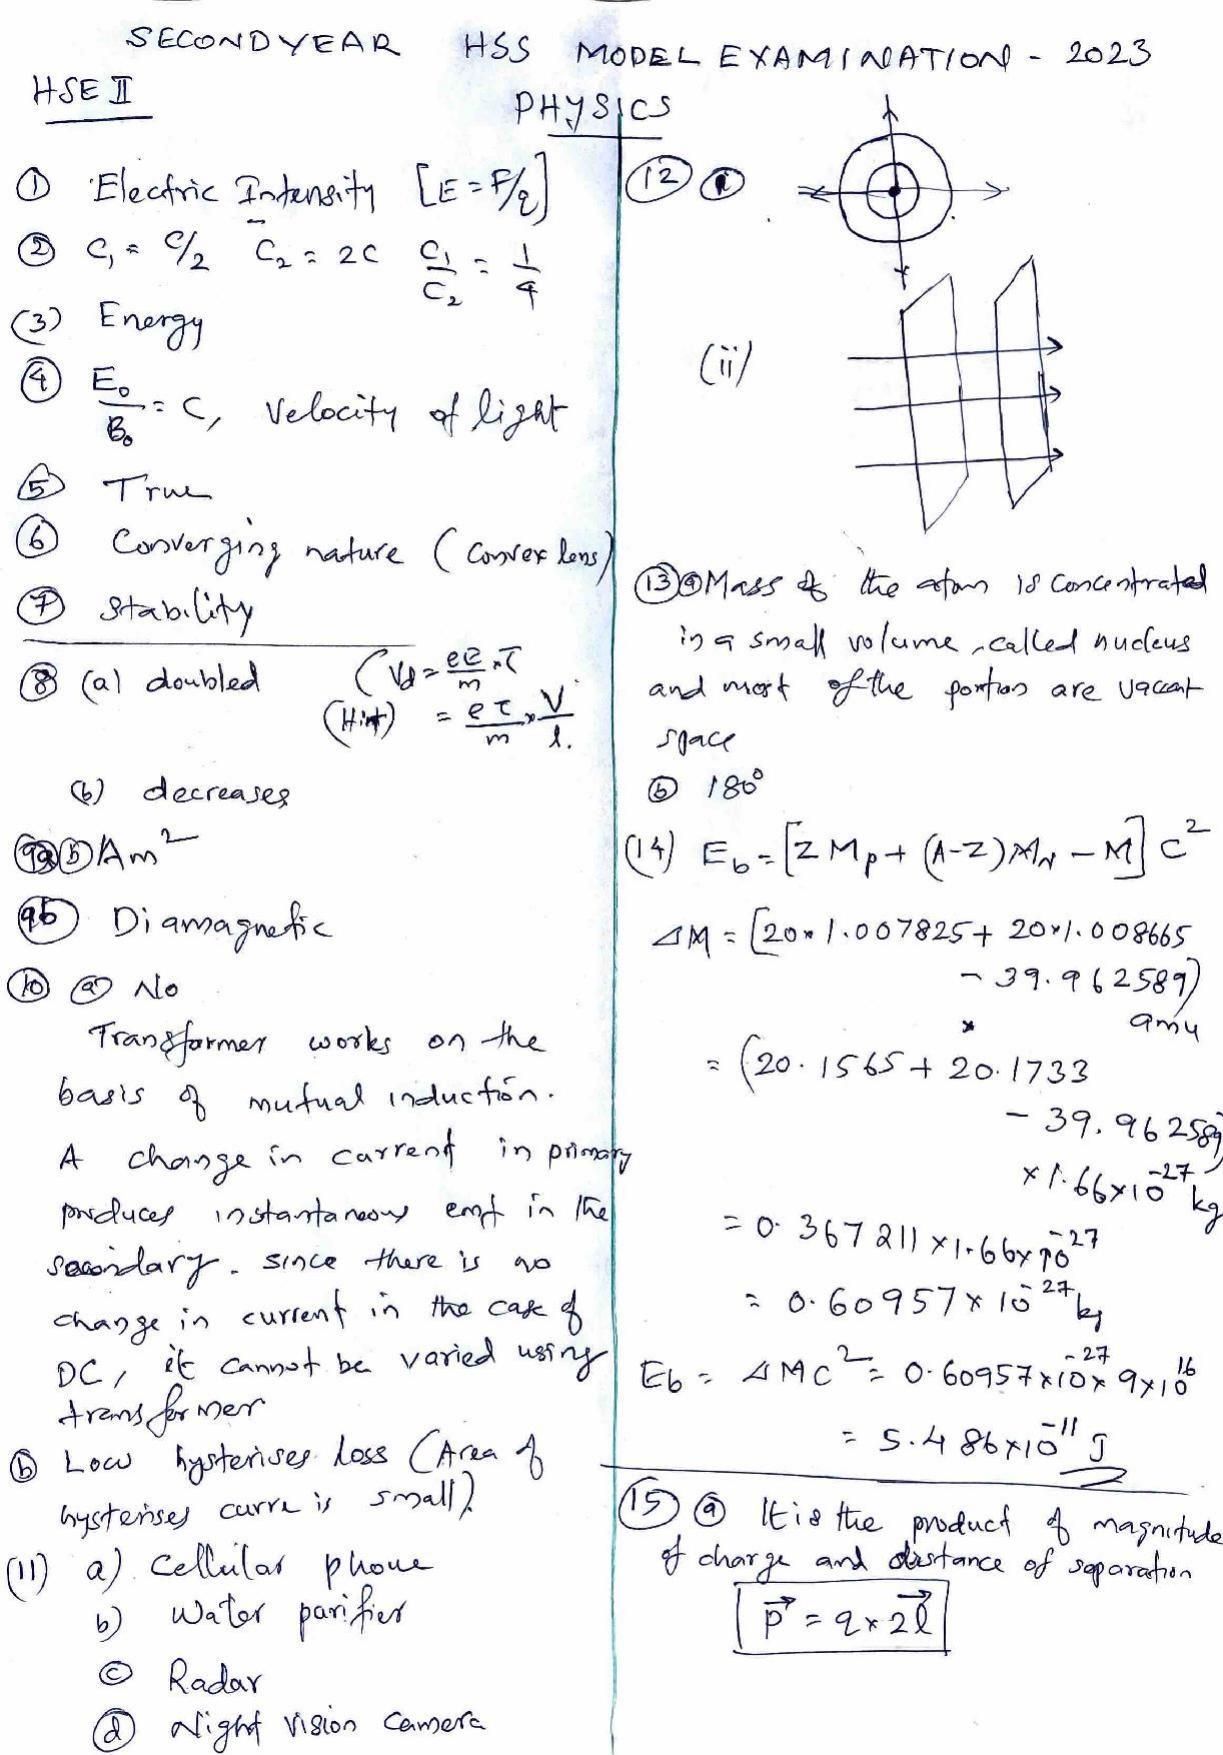 SECONDYEAR HSS MODEL EXAMINATION - 2023
HSE II
PHYSICS
① Electric Intensity [E = F/q]
② C₁ = C/2 C₂ = 2C C₁/C₂ = 1/4
(3) Energy
④ E₀/B₀ = C, Velocity of light
⑤ True
⑥ Converging nature (Convex lens)
⑦ Stability
⑧ (a) doubled (Vd = eE/m × τ
(Hint) = eτ/m × V/l.
(b) decreases
9a ⓑ Am²
9b Diamagnetic
⑩ ⓐ No
Transformer works on the
basis of mutual induction.
A change in current in primary
produces instantaneous emf in the
secondary. since there is no
change in current in the case of
DC, it cannot be varied using
transformer
ⓑ Low hysterises loss (Area of
hysterises curve is small)
(11) a) Cellular phone
b) Water purifier
ⓒ Radar
ⓓ Night Vision Camera
⑫ ⓘ
(ii)
⑬ ⓐ Mass of the atom is concentrated
in a small volume, called nucleus
and most of the portion are vaccant
space
ⓑ 180°
(14) E_b = [Z M_p + (A-Z) M_N - M] C²
ΔM = [20 × 1.007825 + 20 × 1.008665
- 39.962589)
amu
= (20.1565 + 20.1733
- 39.962589)
× 1.66 × 10⁻²⁷ kg
= 0.367211 × 1.66 × 10⁻²⁷
= 0.60957 × 10⁻²⁷ kg
Eb = ΔMC² = 0.60957 × 10⁻²⁷ × 9 × 10¹⁶
= 5.486 × 10⁻¹¹ J
⑮ ⓐ It is the product of magnitude
of charge and distance of separation
p⃗ = q × 2l⃗